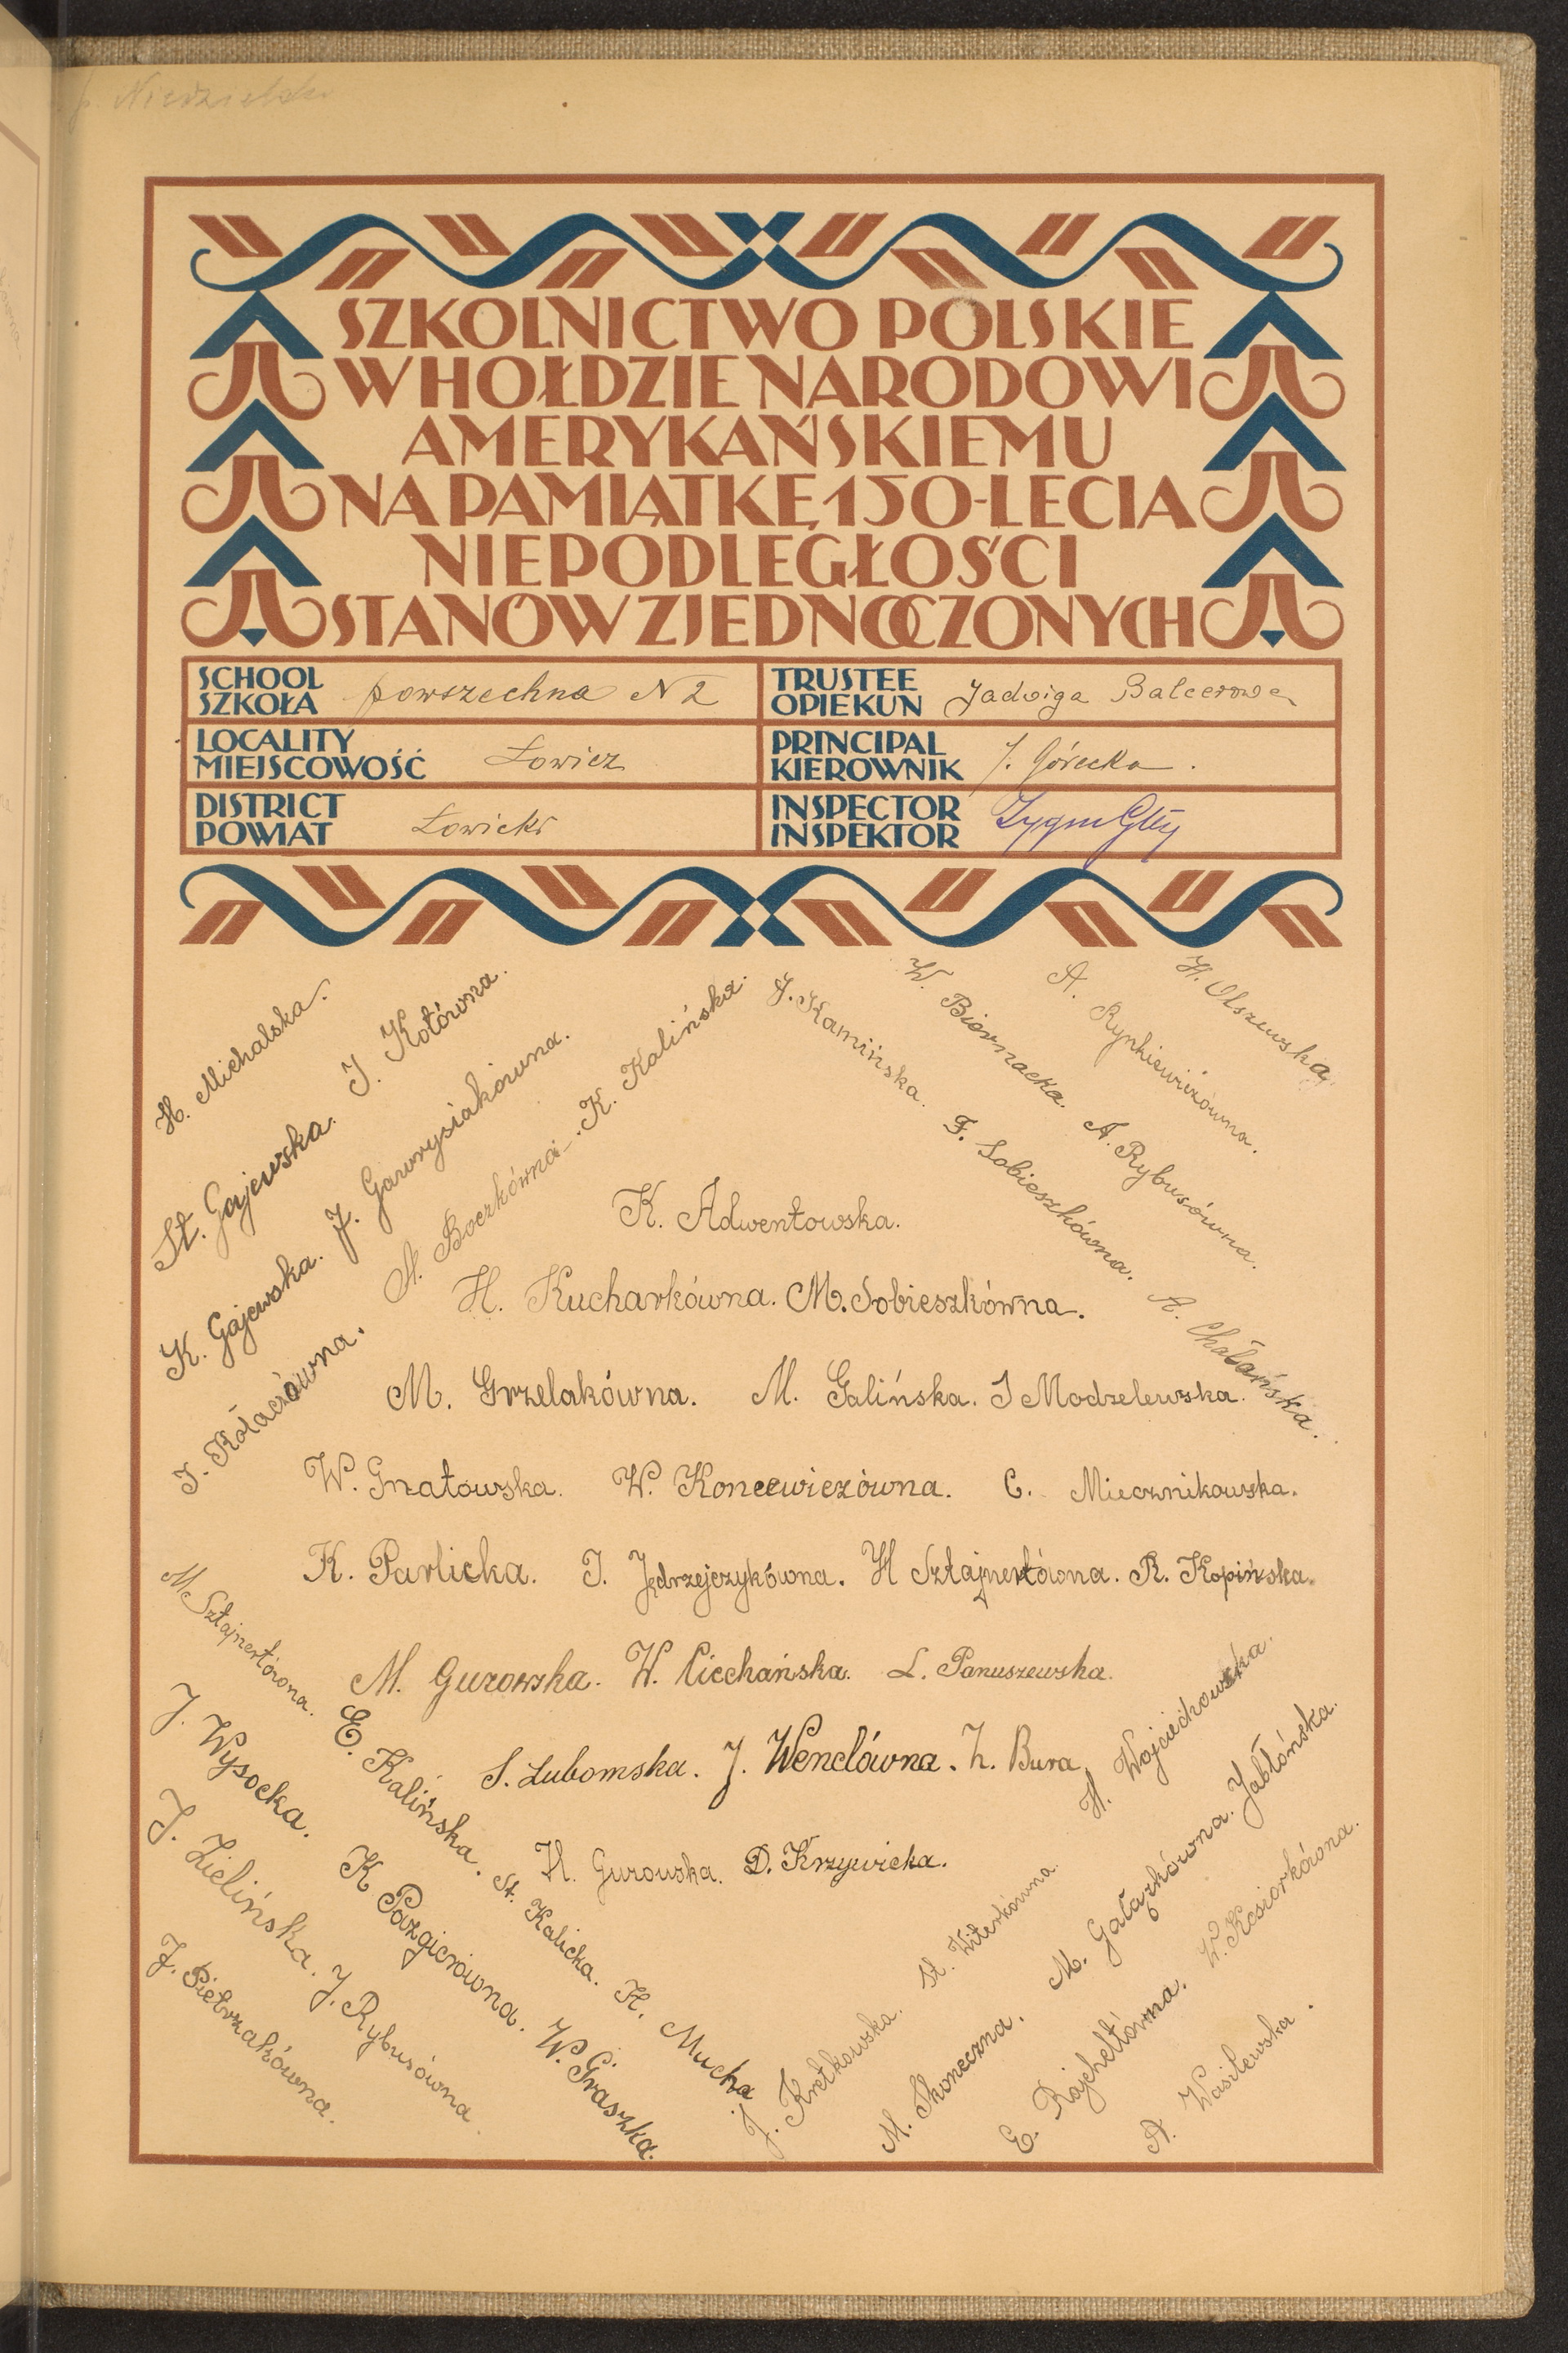 SZKOLNICTWO POLSKIE
W HOŁDZIE NARODOWI
AMERYKAŃSKIEMU
NA PAMIĄTKĘ 150-LECIA
NIEPODLEGŁOŚCI
STANÓW ZJEDNOCZONYCH
SCHOOL
SZKOŁA powszechna N 2
TRUSTEE
OPIEKUN Jadwiga Balcerowa
LOCALITY
MIEJSCOWOŚĆ Łowicz
PRINCIPAL
KIEROWNIK J. Górecka.
DISTRICT
POWIAT Łowicki
INSPECTOR
INSPEKTOR
H. Michalska.
St. Gajewska. J. Kotówna.
K. Gajewska. J. Gawrysiakówna.
J. Kołaczówna. A. Boczkówna. K. Kalińska.
J. Kamińska. F. Sobieszkówna. A. Chałańska.
W. Biernacka. A. Rybusówna.
A. Rynkiewiczówna.
H. Olszewska.
K. Adwentowska.
H. Kucharkówna. M. Sobieszkówna.
M. Grzelakówna. M. Galińska. J Modzelewska.
W. Gnatowska. W. Koncewiczówna. C. Miecznikowska.
K. Pawlicka. J. Jędrzejczykówna. H Sztajnertówna. R. Kopińska.
M. Gurowska. W. Ciechańska. L. Panuszewska.
S. Lubomska. J. Wenclówna. Z. Bura
H. Gurowska. D. Krzywicka.
M Sztajnertówna. E. Kalińska. St. Kalicka. H. Mucha
J. Wysocka. K Pazgierówna. W. Graszka.
J. Zielińska. J. Rybusówna.
J. Pietrzakówna.
J. Kretkowska. St. Witerkówna. H. Wojciechowska.
M. Skoneczna. M. Gałązkówna. Jabłońska.
E. Rajcheltówna. W. Kosiorkówna.
A. Wasilewska.